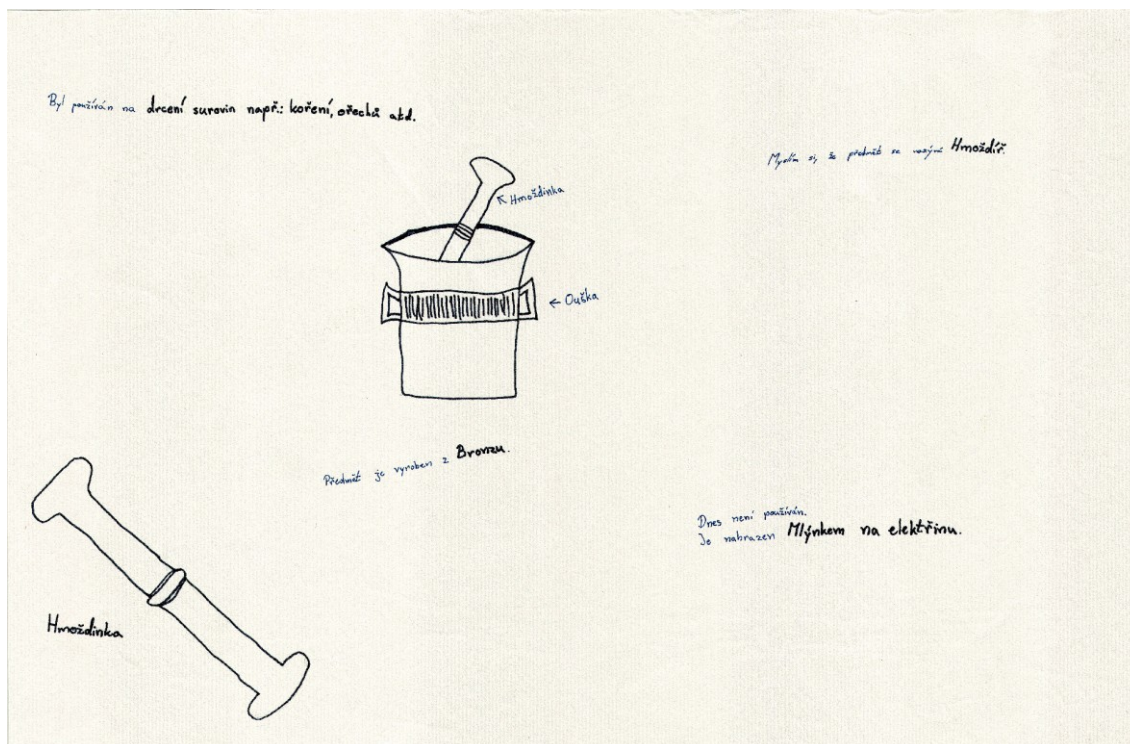 Byl používán na drcení surovin např.: koření, ořechů atd.
Myslím si, že předmět se nazývá Hmoždíř.
Hmoždinka
Ouška
Předmět je vyroben z Bronzu.
Dnes není používán.
Je nahrazen Mlýnkem na elektřinu.
Hmoždinka